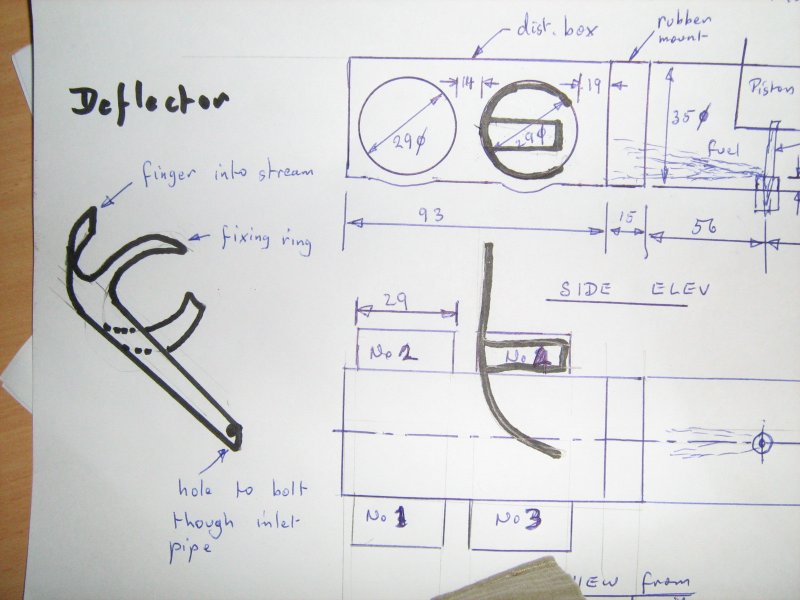 Deflector
finger into stream
fixing ring
hole to bolt
though inlet
pipe
dist. box
rubber
mount
14
19
29φ
29φ
35φ
Piston
fuel
93
15
56
SIDE ELEV
29
No 2
No
No 1
No 3
VIEW from